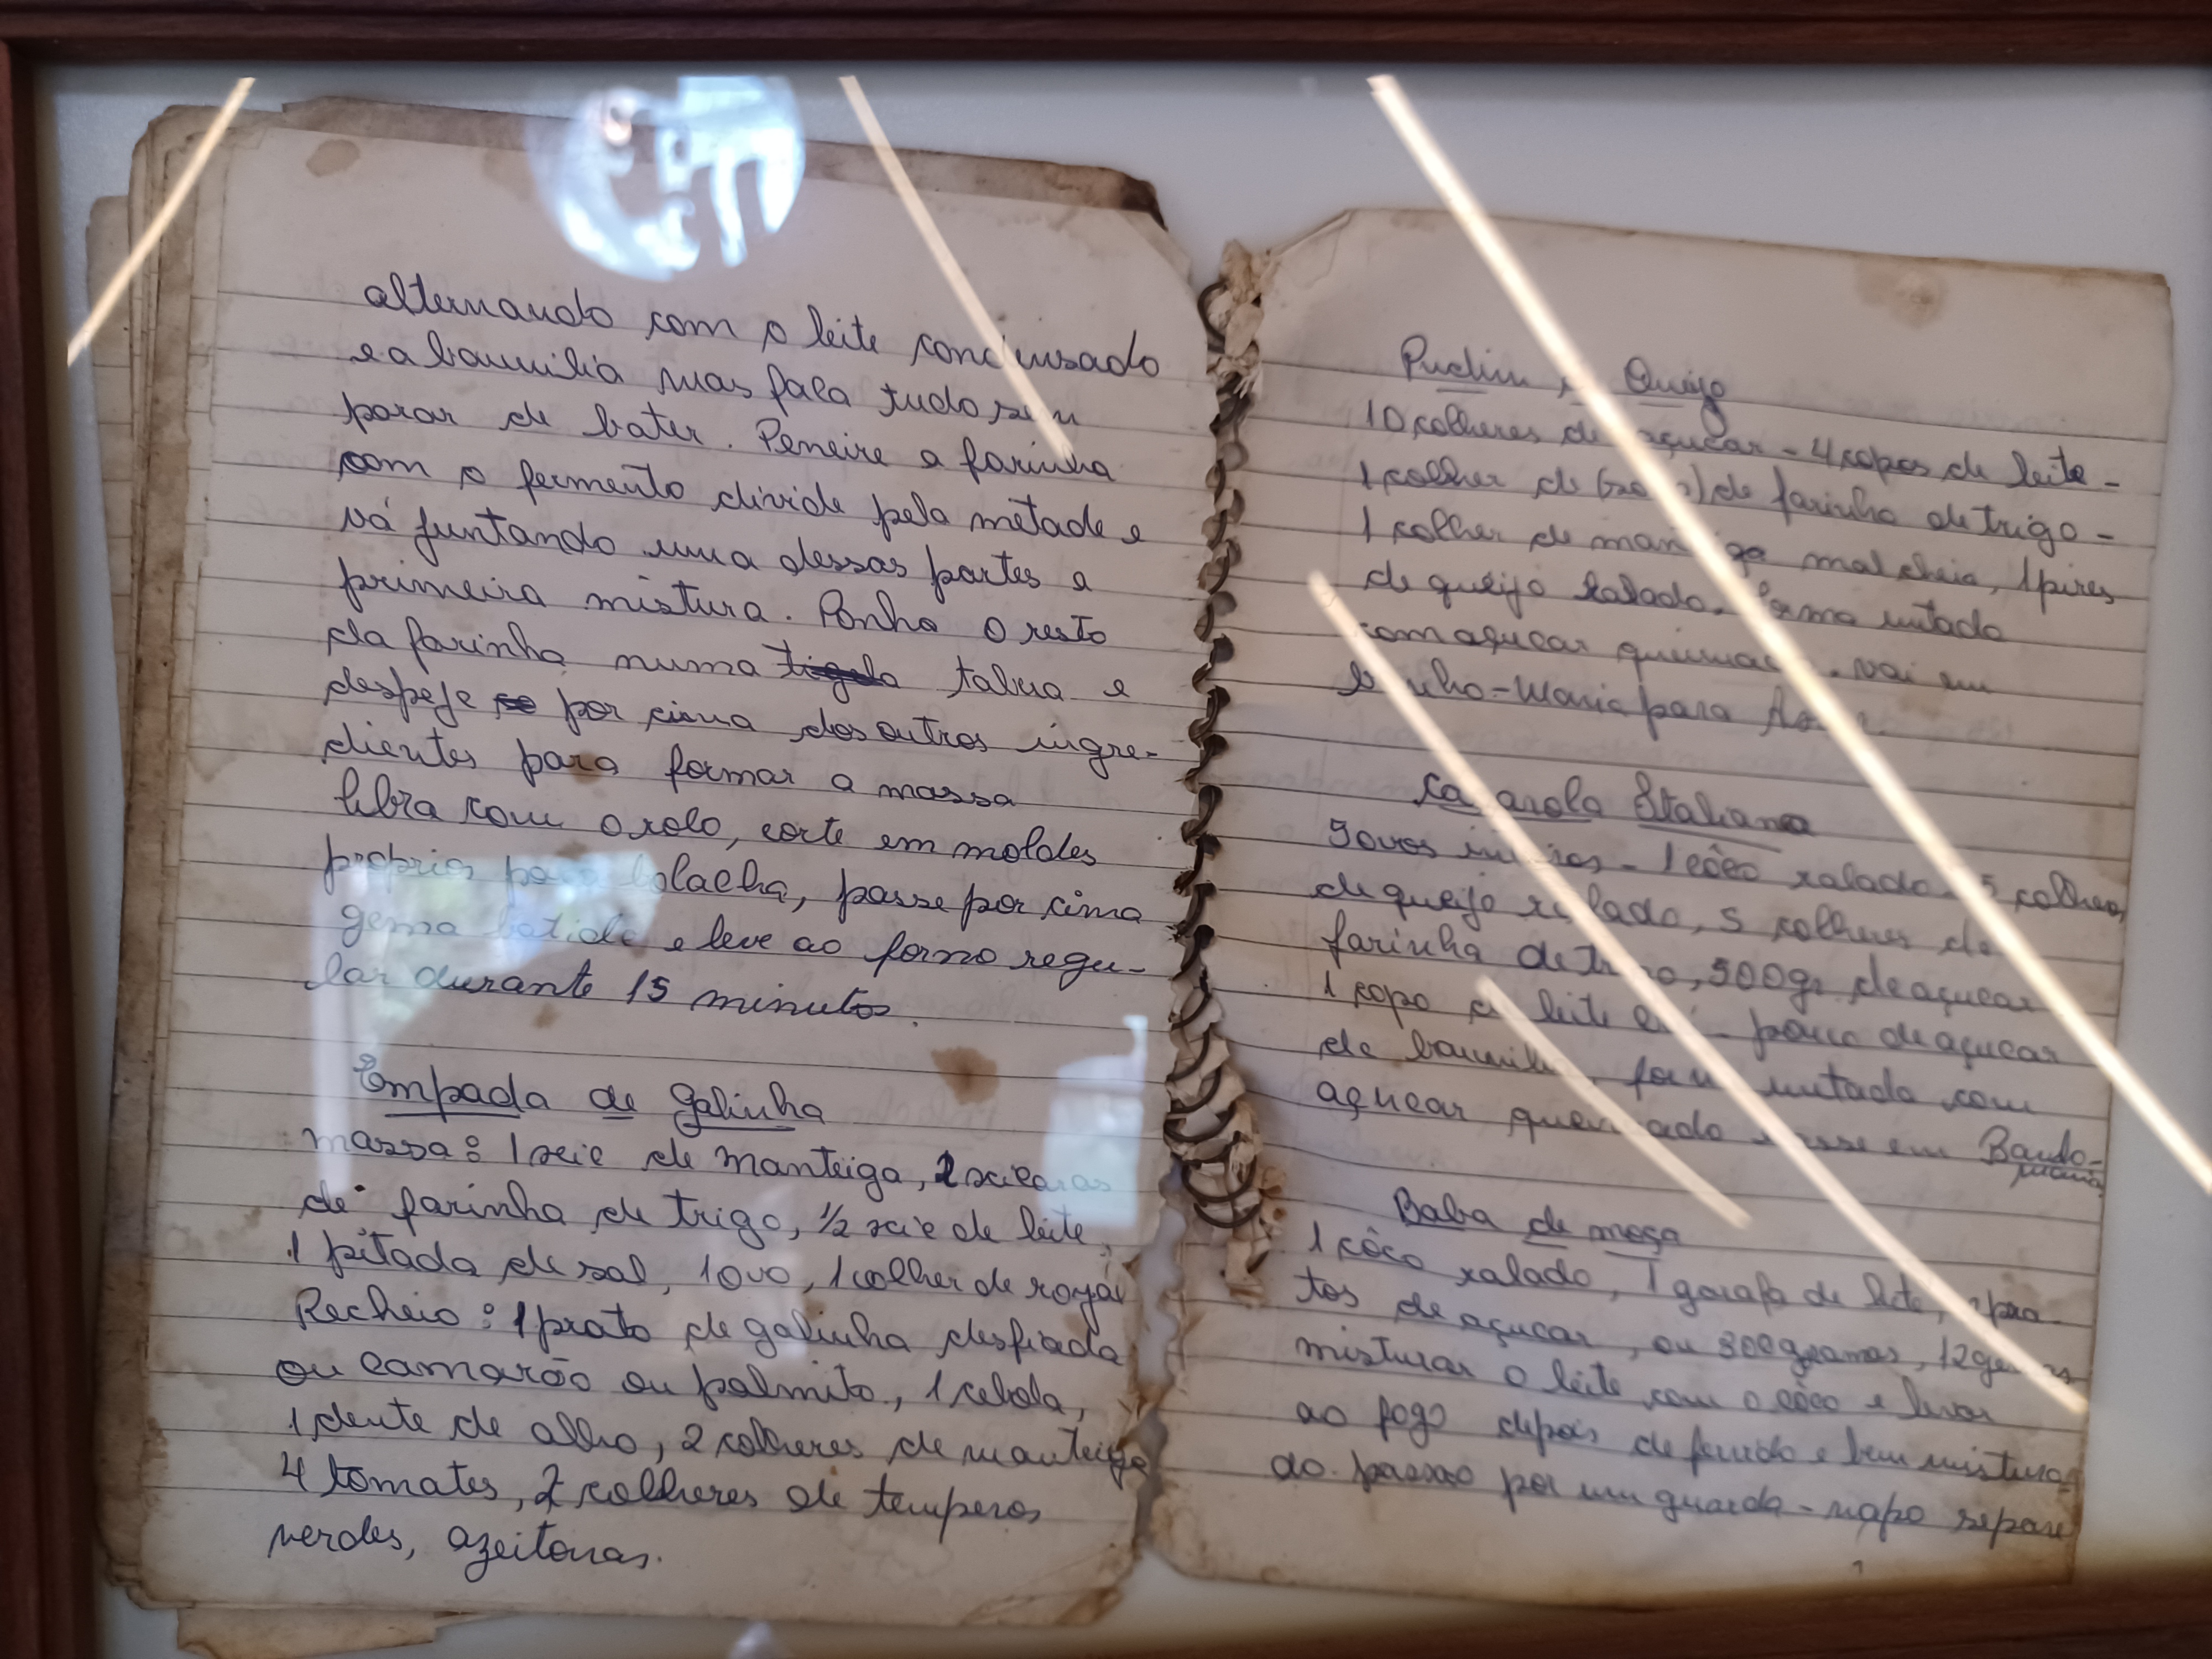 alternando com o leite condensado
e a baunilia mas faça tudo sem
parar de bater. Peneire a farinha
com o fermento divide pela metade e
vá juntando uma dessas partes a
primeira mistura. Ponha o resto
da farinha numa tigela tabua e
despeje por cima dos outros ingre-
dientes para formar a massa
Abra com o rolo, corte em moldes
proprios para bolacha, passe por cima
gema batida e leve ao forno regu-
lar durante 15 minutos.
Empada de galinha
massa: 1 xic de manteiga, 2 xicaras
de farinha de trigo, 1/2 xic de leite,
1 pitada de sal, 1 ovo, 1 colher de royal
Recheio: 1 prato de galinha desfiada
ou camarão ou palmito, 1 cebola,
1 dente de alho, 2 colheres de manteiga
4 tomates, 2 colheres de temperos
verdes, azeitonas.
Pudim Queijo
10 colheres de açucar - 4 copos de leite -
1 colher de (sopa) de farinha de trigo -
1 colher de manteiga mal cheia, 1 pires
de queijo ralado. Forma untada
com açucar queimado. Vai em
banho-Maria para
Caçarola Italiana
5 ovos inteiros - 1 côco ralado - 5 colheres
de queijo ralado, 5 colheres de
farinha de trigo, 500gr de açucar
1 copo de leite pouco de açucar
de baunilha, forma untada com
açucar queimado asse em Banho-
maria
Baba de moça
1 côco ralado, 1 garafa de leite, 2 pra-
tos de açucar, ou 300 gramas, 12 gemas
misturar o leite com o côco e levar
ao fogo depois de fervido e bem mistura-
do. passao por um guarda-napo separe